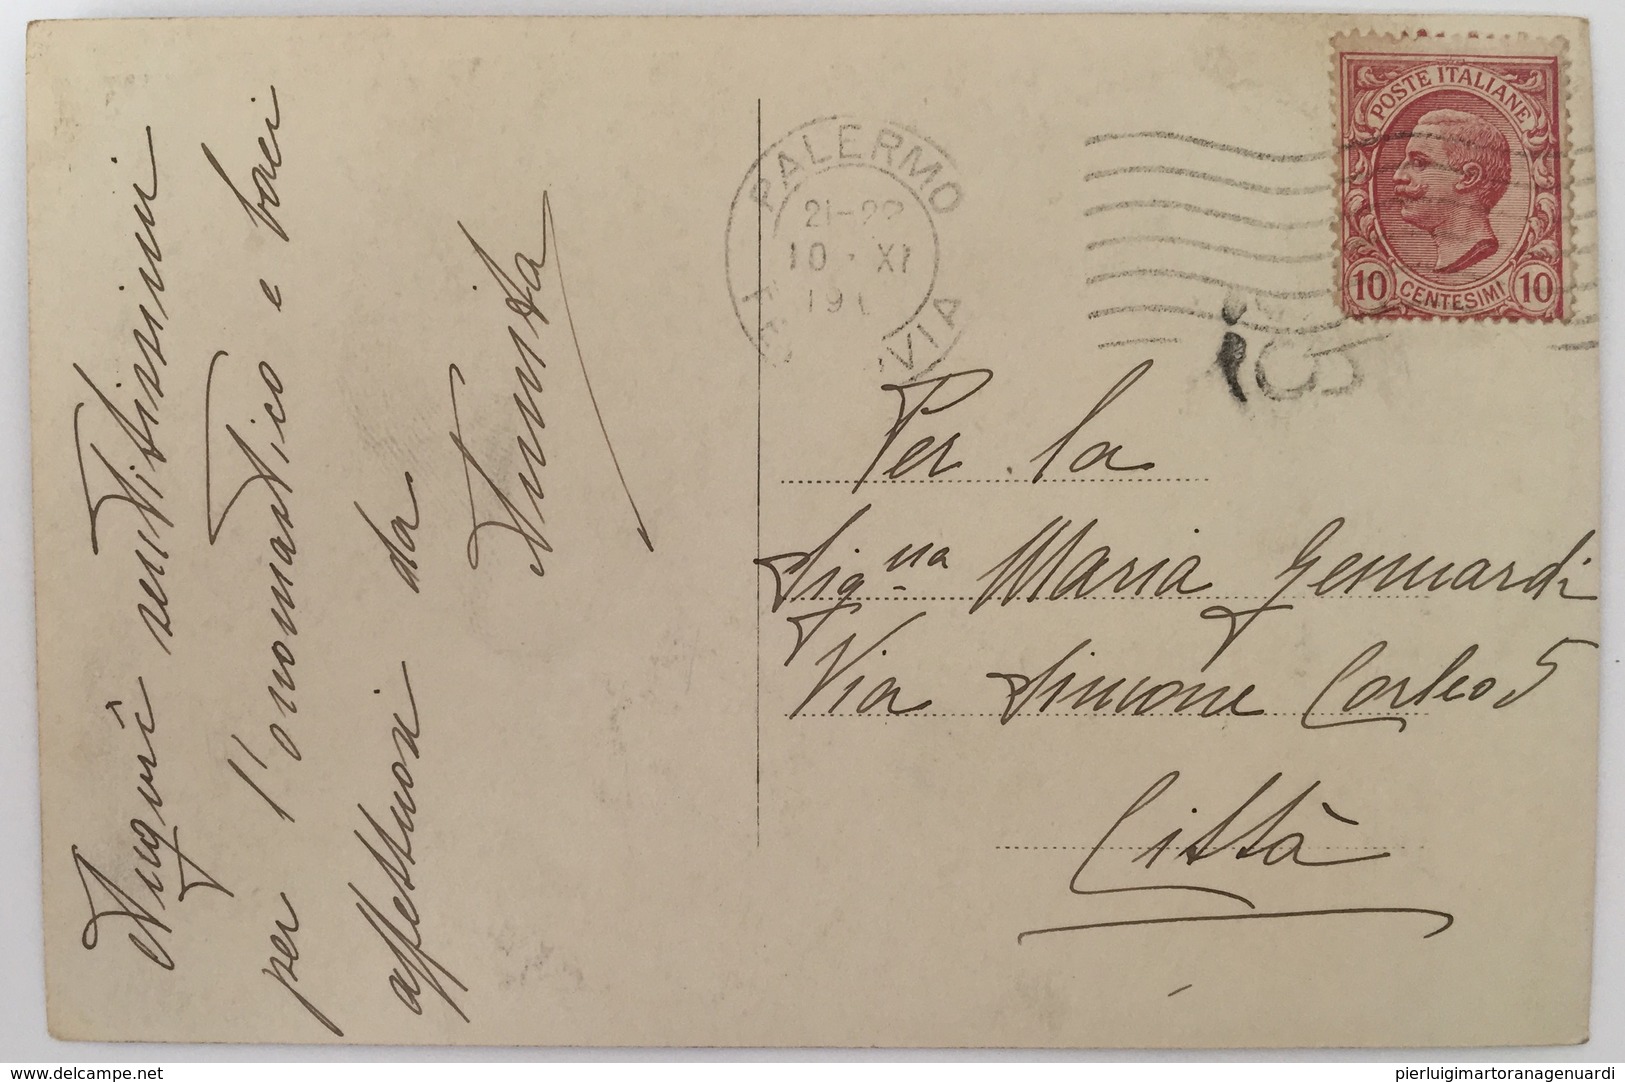 Augurî sentitissimi
per l'onomastico e baci
affettuosi da
Annita
PALERMO
21-22
10 · XI
191
VIA
POSTE ITALIANE
10 CENTESIMI 10
Per la
Sig.na Maria Genuardi
Via Simone Corleo 5
Città
delcampe.net
pierluigimartoranagenuardi